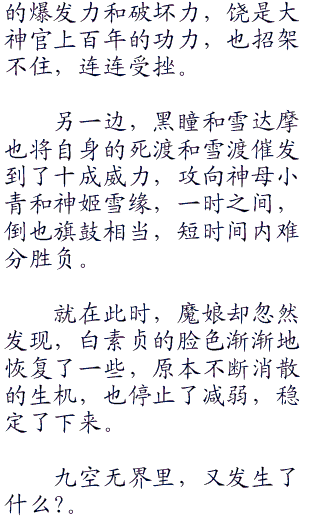 的爆发力和破坏力，饶是大
神官上百年的功力，也招架
不住，连连受挫。
另一边，黑瞳和雪达摩
也将自身的死渡和雪渡催发
到了十成威力，攻向神母小
青和神姬雪缘，一时之间，
倒也旗鼓相当，短时间内难
分胜负。
就在此时，魔娘却忽然
发现，白素贞的脸色渐渐地
恢复了一些，原本不断消散
的生机，也停止了减弱，稳
定了下来。
九空无界里，又发生了
什么?。